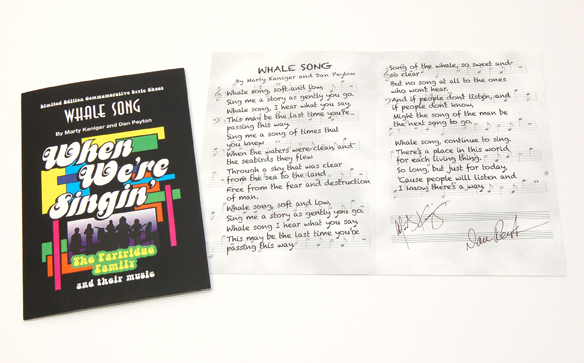 Limited Edition Commemorative Lyric Sheet
WHALE SONG
By Marty Kaniger and Dan Peyton
When
We're
Singin'
The Partridge
Family
and their music
WHALE SONG
By Marty Kaniger and Dan Peyton
Whale song, soft and low,
Sing me a story as gently you go.
Whale song, I hear what you say,
This may be the last time you're
passing this way.
Sing me a song of times that
you knew
When the waters were clean and
the seabirds they flew
Through a sky that was clear
from the sea to the land
Free from the fear and destruction
of man.
Whale song, soft and low,
Sing me a story as gently you go.
Whale song I hear what you say,
This may be the last time you're
passing this way.
Song of the whale, so sweet and
so clear
But no song at all to the ones
who wont hear.
And if people don't listen, and
if people don't know,
Might the song of the man be
the next song to go.
Whale song, continue to sing.
There's a place in this world,
for each living thing.
So long, but just for today,
'Cause people will listen and
I know there's a way.